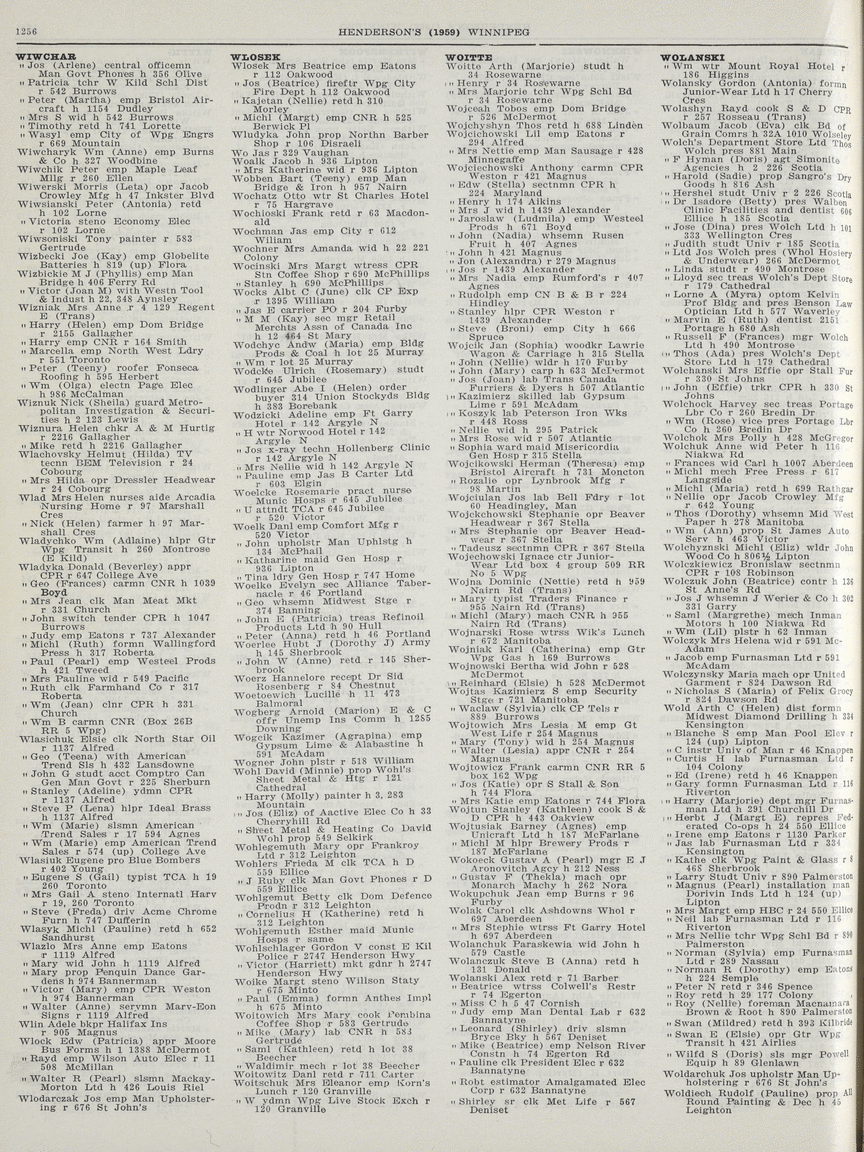 1256
HENDERSON'S (1959) WINNIPEG
WIWCHAR
" Jos (Arlene) central officemn
Man Govt Phones h 356 Olive
" Patricia tchr W Kild Schl Dist
r 542 Burrows
" Peter (Martha) emp Bristol Air-
craft h 1154 Dudley
" Mrs S wid h 542 Burrows
" Timothy retd h 741 Lorette
" Wasyl emp City of Wpg Engrs
r 669 Mountain
Wiwcharyk Wm (Anne) emp Burns
& Co h 327 Woodbine
Wiwchik Peter emp Maple Leaf
Millg r 260 Ellen
Wiwerski Morris (Leta) opr Jacob
Crowley Mfg h 47 Inkster Blvd
Wiwsianski Peter (Antonia) retd
h 102 Lorne
" Victoria steno Economy Elec
r 102 Lorne
Wiwsoniski Tony painter r 583
Gertrude
Wizbecki Joe (Kay) emp Globelite
Batteries h 819 (up) Flora
Wizbickie M J (Phyllis) emp Man
Bridge h 406 Ferry Rd
" Victor (Joan M) with Westn Tool
& Indust h 22, 348 Aynsley
Wizniak Mrs Anne r 4 129 Regent
E (Trans)
" Harry (Helen) emp Dom Bridge
r 2155 Gallagher
" Harry emp CNR r 164 Smith
" Marcella emp North West Ldry
r 551 Toronto
" Peter (Teeny) roofer Fonseca
Roofing h 595 Herbert
" Wm (Olga) electn Page Elec
h 986 McCalman
Wiznuk Nick (Sheila) guard Metro-
politan Investigation & Securi-
ties h 2 123 Lewis
Wiznura Helen chkr A & M Hurtig
r 2216 Gallagher
" Mike retd h 2216 Gallagher
Wlachovsky Helmut (Hilda) TV
tecnn BEM Television r 24
Cobourg
" Mrs Hilda opr Dressler Headwear
r 24 Cobourg
Wlad Mrs Helen nurses aide Arcadia
Nursing Home r 97 Marshall
Cres
" Nick (Helen) farmer h 97 Mar-
shall Cres
Wladychko Wm (Adlaine) hlpr Gtr
Wpg Transit h 260 Montrose
(E Kild)
Wladyka Donald (Beverley) appr
CPR r 647 College Ave
" Geo (Frances) carmn CNR h 1039
Boyd
" Mrs Jean clk Man Meat Mkt
r 331 Church
" John switch tender CPR h 1047
Burrows
" Judy emp Eatons r 737 Alexander
" Michl (Ruth) formn Wallingford
Press h 317 Roberta
" Paul (Pearl) emp Westeel Prods
h 421 Tweed
" Mrs Pauline wid r 549 Pacific
" Ruth clk Farmhand Co r 317
Roberta
" Wm (Jean) clnr CPR h 331
Church
" Wm B carmn CNR (Box 26B
RR 5 Wpg)
Wlasichuk Elsie clk North Star Oil
r 1137 Alfred
" Geo (Teena) with American
Trend Sls h 432 Lansdowne
" John G studt acct Comptro Can
Gen Man Govt r 225 Sherburn
" Stanley (Adeline) ydmn CPR
r 1137 Alfred
" Steve P (Lena) hlpr Ideal Brass
h 1137 Alfred
" Wm (Marie) slsmn American
Trend Sales r 17 594 Agnes
" Wm (Marie) emp American Trend
Sales r 574 (up) College Ave
Wlasiuk Eugene pro Blue Bombers
r 402 Young
" Eugene S (Gail) typist TCA h 19
260 Toronto
" Mrs Gail A steno Internatl Harv
r 19, 260 Toronto
" Steve (Freda) driv Acme Chrome
Furn h 747 Dufferin
Wlasyk Michl (Pauline) retd h 652
Sandhurst
Wlazlo Mrs Anne emp Eatons
r 1119 Alfred
" Mary wid John h 1119 Alfred
" Mary prop Penquin Dance Gar-
dens h 974 Bannerman
" Victor (Mary) emp CPR Weston
h 974 Bannerman
" Walter (Anne) servmn Marv-Eon
Signs r 1119 Alfred
Wlin Adele bkpr Halifax Ins
r 905 Magnus
Wlock Edw (Patricia) appr Moore
Bus Forms h 1 1388 McDermot
" Rayd emp Wilson Auto Elec r 11
508 McMillan
" Walter R (Pearl) slsmn Mackay-
Morton Ltd h 426 Louis Riel
Wlodarczak Jos emp Man Upholster-
ing r 676 St John's
WLOSEK
Wlosek Mrs Beatrice emp Eatons
r 112 Oakwood
" Jos (Beatrice) fireftr Wpg City
Fire Dept h 112 Oakwood
" Kajetan (Nellie) retd h 310
Morley
" Michl (Margt) emp CNR h 525
Berwick Pl
Wludyka John prop Northn Barber
Shop r 106 Disraeli
Wo Jas r 329 Vaughan
Woalk Jacob h 936 Lipton
" Mrs Katherine wid r 936 Lipton
Wobben Bart (Teeny) emp Man
Bridge & Iron h 957 Nairn
Wochatz Otto wtr St Charles Hotel
r 75 Hargrave
Wochioski Frank retd r 63 Macdon-
ald
Wochman Jas emp City r 612
William
Wochner Mrs Amanda wid h 22 221
Colony
Wocinski Mrs Margt wtress CPR
Stn Coffee Shop r 690 McPhillips
" Stanley h 690 McPhillips
Wocks Albt C (June) clk CP Exp
r 1395 William
" Jas E carrier PO r 204 Furby
" M M (Kay) sec mgr Retail
Merchts Assn of Canada Inc
h 12 464 St Mary
Wodchyc Andw (Maria) emp Bldg
Prods & Coal h lot 25 Murray
" Wm r lot 25 Murray
Wodcke Ulrich (Rosemary) studt
r 645 Jubilee
Wodlinger Abe I (Helen) order
buyer 314 Union Stockyds Bldg
h 383 Borebank
Wodzicki Adeline emp Ft Garry
Hotel r 142 Argyle N
" H wtr Norwood Hotel r 142
Argyle N
" Jos x-ray techn Hollenberg Clinic
r 142 Argyle N
" Mrs Nellie wid h 142 Argyle N
" Pauline emp Jas B Carter Ltd
r 603 Elgin
Woelcke Rosemarie pract nurse
Munic Hosps r 645 Jubilee
" U attndt TCA r 645 Jubilee
r 520 Victor
Woelk Danl emp Comfort Mfg r
520 Victor
" John upholstr Man Uphlstg h
134 McPhail
" Katharine maid Gen Hosp r
936 Lipton
" Tina ldry Gen Hosp r 747 Home
Woelke Evelyn sec Alliance Taber-
nacle r 46 Portland
" Geo whsemn Midwest Stge r
374 Banning
" John E (Patricia) treas Refinoil
Products Ltd h 90 Hull
" Peter (Anna) retd h 46 Portland
Woerlee Hubt J (Dorothy J) Army
h 145 Sherbrook
" John W (Anne) retd r 145 Sher-
brook
Woerz Hannelore recept Dr Sid
Rosenberg r 84 Chestnut
Woetoewich Lucille h 11 473
Balmoral
Wogberg Arnold (Marion) E & C
offr Unemp Ins Comm h 1285
Downing
Wogcik Kazimer (Agrapina) emp
Gypsum Lime & Alabastine h
591 McAdam
Wogner John plstr r 518 William
Wohl David (Minnie) prop Wohl's
Sheet Metal & Htg r 121
Cathedral
" Harry (Molly) painter h 3, 283
Mountain
" Jos (Eliz) of Aactive Elec Co h 33
Cherryhill Rd
" Sheet Metal & Heating Co David
Wohl prop 549 Selkirk
Wohlegemuth Mary opr Frankroy
Ltd r 312 Leighton
Wohlers Frieda M clk TCA h D
559 Ellice
" J Ruby clk Man Govt Phones r D
559 Ellice
Wohlgemut Betty clk Dom Defence
Prodn r 312 Leighton
" Cornelius H (Katherine) retd h
312 Leighton
Wohlgemuth Esther maid Munic
Hosps r same
Wohlschlager Gordon V const E Kil
Police r 2747 Henderson Hwy
" Victor (Harriett) mkt gdnr h 2747
Henderson Hwy
Woike Margt steno Willson Staty
r 675 Minto
" Paul (Emma) formn Anthes Impl
h 675 Minto
Woitowich Mrs Mary cook Pembina
Coffee Shop r 583 Gertrude
" Mike (Mary) lab CNR h 583
Gertrude
" Saml (Kathleen) retd h lot 38
Beecher
" Waldimir mech r lot 38 Beecher
Woitowitz Danl retd r 711 Carter
Woitschuk Mrs Eleanor emp Korn's
Lunch r 120 Granville
" W ydmn Wpg Live Stock Exch r
120 Granville
WOITTE
Woitte Arth (Marjorie) studt h
34 Rosewarne
" Henry r 34 Rosewarne
" Mrs Marjorie tchr Wpg Schl Bd
r 34 Rosewarne
Wojceah Tobos emp Dom Bridge
r 526 McDermot
Wojchyshyn Thos retd h 688 Linden
Wojcichowski Lil emp Eatons r
294 Alfred
" Mrs Nettie emp Man Sausage r 428
Minnegaffe
Wojciechowski Anthony carmn CPR
Weston r 421 Magnus
" Edw (Stella) sectnmn CPR h
224 Maryland
" Henry h 174 Aikins
" Mrs J wid h 1439 Alexander
" Jaroslaw (Ludmila) emp Westeel
Prods h 671 Boyd
" John (Nadia) whsemn Rusen
Fruit h 407 Agnes
" John h 421 Magnus
" Jon (Alexandra) r 279 Magnus
" Jos r 1439 Alexander
" Mrs Nadia emp Rumford's r 407
Agnes
" Rudolph emp CN B & B r 224
Hindley
" Stanley hlpr CPR Weston r
1439 Alexander
" Steve (Broni) emp City h 666
Spruce
Wojcik Jan (Sophia) woodkr Lawrie
Wagon & Carriage h 315 Stella
" John (Nellie) wldr h 170 Furby
" John (Mary) carp h 633 McDermot
" Jos (Joan) lab Trans Canada
Furriers & Dyers h 507 Atlantic
" Kazimierz skilled lab Gypsum
Lime r 591 McAdam
" Koszyk lab Peterson Iron Wks
r 448 Ross
" Nellie wid h 295 Patrick
" Mrs Rose wid r 507 Atlantic
" Sophia ward maid Misericordia
Gen Hosp r 315 Stella
Wojcikowski Herman (Theresa) emp
Bristol Aircraft h 731 Moncton
" Rozalie opr Lynbrook Mfg r
98 Martin
Wojciulan Jos lab Bell Fdry r lot
60 Headingley, Man
Wojckchowski Stephanie opr Beaver
Headwear r 367 Stella
" Mrs Stephanie opr Beaver Head-
wear r 367 Stella
" Tadeusz sectnmn CPR r 367 Stella
Wojechowski Ignace ctr Junior-
Wear Ltd box 4 group 509 RR
No 5 Wpg
Wojna Dominic (Nettie) retd h 959
Nairn Rd (Trans)
" Mary typist Traders Finance r
955 Nairn Rd (Trans)
" Michl (Mary) mach CNR h 955
Nairn Rd (Trans)
Wojnarski Rose wtrss Wik's Lunch
r 672 Manitoba
Wojniak Karl (Catherina) emp Gtr
Wpg Gas h 169 Burrows
Wojnowski Bertha wid John r 528
McDermot
" Reinhard (Elsie) h 528 McDermot
Wojtas Kazimierz S emp Security
Stge r 721 Manitoba
" Waclaw (Sylvia) clk CP Tels r
889 Burrows
Wojtowich Mrs Lesia M emp Gt
West Life r 254 Magnus
" Mary (Tony) wid h 254 Magnus
" Walter (Lesia) appr CNR r 254
Magnus
Wojtowicz Frank carmn CNR RR 5
box 162 Wpg
" Jos (Katie) opr S Stall & Son
h 744 Flora
" Mrs Katie emp Eatons r 744 Flora
Wojtun Stanley (Kathleen) cook S &
D CPR h 443 Oakview
Wojtusiak Barney (Agnes) emp
Unicraft Ltd h 187 McFarlane
" Michl M hlpr Brewery Prods r
187 McFarlane
Wokoeck Gustav A (Pearl) mgr E J
Aronovitch Agcy h 212 Ness
" Gustav F (Thekla) mach opr
Monarch Machy h 262 Nora
Wokeup Jean emp Burns r 96
Furby
Wolak Carol clk Ashdowns Whol r
697 Aberdeen
" Mrs Stephie wtrss Ft Garry Hotel
h 697 Aberdeen
Wolanchuk Paraskewia wid John h
579 Castle
Wolanczuk Steve B (Anna) retd h
131 Donald
Wolanski Alex retd r 71 Barber
" Beatrice wtrss Colwell's Restr
r 74 Egerton
" Miss C h 5 47 Cornish
" Judy emp Man Dental Lab r 632
Bannatyne
" Leonard (Shirley) driv slsmn
Bryce Bky h 567 Deniset
" Mike (Beatrice) emp Nelson River
Constn h 74 Egerton Rd
" Pauline clk President Elec r 632
Bannatyne
" Robt estimator Amalgamated Elec
Corp r 632 Bannatyne
" Shirley sr clk Met Life r 567
Deniset
WOLANSKI
" Wm wtr Mount Royal Hotel r
186 Higgins
Wolansky Gordon (Antonia) formn
Junior-Wear Ltd h 17 Cherry
Cres
Wolashyn Rayd cook S & D CPR
r 257 Rosseau (Trans)
Wolbaum Jacob (Eva) clk Bd of
Grain Comrs h 32A 1010 Wolseley
Wolch's Department Store Ltd Thos
Wolch pres 881 Main
" F Hyman (Doris) agt Simonite
Agencies h 2 226 Scotia
" Harold (Sadie) prop Sangro's Dry
Goods h 816 Ash
" Hershel studt Univ r 2 226 Scotia
" Dr Isadore (Betty) pres Walbon
Clinic Facilities and dentist 606
Ellice h 185 Scotia
" Jose (Dina) pres Wolch Ltd h 101
333 Wellington Cres
" Judith studt Univ r 185 Scotia
" Ltd Jos Wolch pres (Whol Hosiery
& Underwear) 266 McDermot
" Linda studt r 490 Montrose
" Lloyd sec treas Wolch's Dept Store
r 179 Cathedral
" Lorne A (Myra) optom Kelvin
Prof Bldg and pres Benson Law
Optician Ltd h 577 Waverley
" Marvin E (Ruth) dentist 2151
Portage h 680 Ash
" Russell F (Frances) mgr Wolch
Ltd h 490 Montrose
" Thos (Ada) pres Wolch's Dept
Store Ltd h 179 Cathedral
Wolchanski Mrs Effie opr Stall Fur
r 330 St Johns
" John (Effie) trkr CPR h 330 St
Johns
Wolchock Harvey sec treas Portage
Lbr Co r 260 Bredin Dr
" Wm (Rose) vice pres Portage Lbr
Co h 260 Bredin Dr
Wolchok Mrs Polly h 428 McGregor
Wolchuk Anne wid Peter h 116
Niakwa Rd
" Frances wid Carl h 1007 Aberdeen
" Michl mech Free Press r 617
Langside
" Michl (Maria) retd h 699 Rathgar
" Nellie opr Jacob Crowley Mfg
r 642 Young
" Thos (Dorothy) whsemn Mid West
Paper h 278 Manitoba
" Wm (Ann) prop St James Auto
Serv h 463 Victor
Wolchyznski Michl (Eliz) wldr John
Wood Co h 806½ Lipton
Wolczkiewicz Bronislaw sectnmn
CPR r 108 Robinson
Wolczuk John (Beatrice) contr h 136
St Anne's Rd
" Jos J whsemn J Werier & Co h 302
331 Garry
" Saml (Margrethe) mech Inman
Motors h 100 Niakwa Rd
" Wm (Lil) plstr h 62 Inman
Wolczyk Mrs Helena wid r 591 Mc-
Adam
" Jacob emp Furnasman Ltd r 591
McAdam
Wolczynsky Maria mach opr United
Garment r 824 Dawson Rd
" Nicholas S (Maria) of Felix Grocy
r 824 Dawson Rd
Wold Arth C (Helen) dist formn
Midwest Diamond Drilling h 334
Kensington
" Blanche S emp Man Pool Elev r
124 (up) Lipton
" C instr Univ of Man r 46 Knappen
" Curtis H lab Furnasman Ltd r
104 Colony
" Ed (Irene) retd h 46 Knappen
" Gary formn Furnasman Ltd r 116
Riverton
" Harry (Marjorie) dept mgr Furnas-
man Ltd h 291 Churchill Dr
" Herbt J (Margt E) repres Fed-
erated Co-ops h 24 550 Ellice
" Irene emp Eatons r 1130 Parker
" Jas lab Furnasman Ltd r 334
Kensington
" Kathe clk Wpg Paint & Glass r 8
468 Sherbrook
" Larry Studt Univ r 890 Palmerston
" Magnus (Pearl) installation man
Dorivin Inds Ltd h 124 (up)
Lipton
" Mrs Margt emp HBC r 24 550 Ellice
" Neil lab Furnasman Ltd r 116
Riverton
" Mrs Nellie tchr Wpg Schl Bd r 890
Palmerston
" Norman (Sylvia) emp Furnasman
Ltd r 289 Nassau
" Norman R (Dorothy) emp Eatons
h 224 Semple
" Peter N retd r 346 Spence
" Roy retd h 29 177 Colony
" Roy (Nellie) foreman Macnamara
Brown & Root h 890 Palmerston
" Swan (Mildred) retd h 393 Kilbride
" Swan E (Elsie) opr Gtr Wpg
Transit h 421 Airlies
" Wilfd S (Doris) sls mgr Powell
Equip h 89 Glenlawn
Woldarchuk Jos upholstr Man Up-
holstering r 676 St John's
Woldiech Rudolf (Pauline) prop All
Round Painting & Dec h 45
Leighton